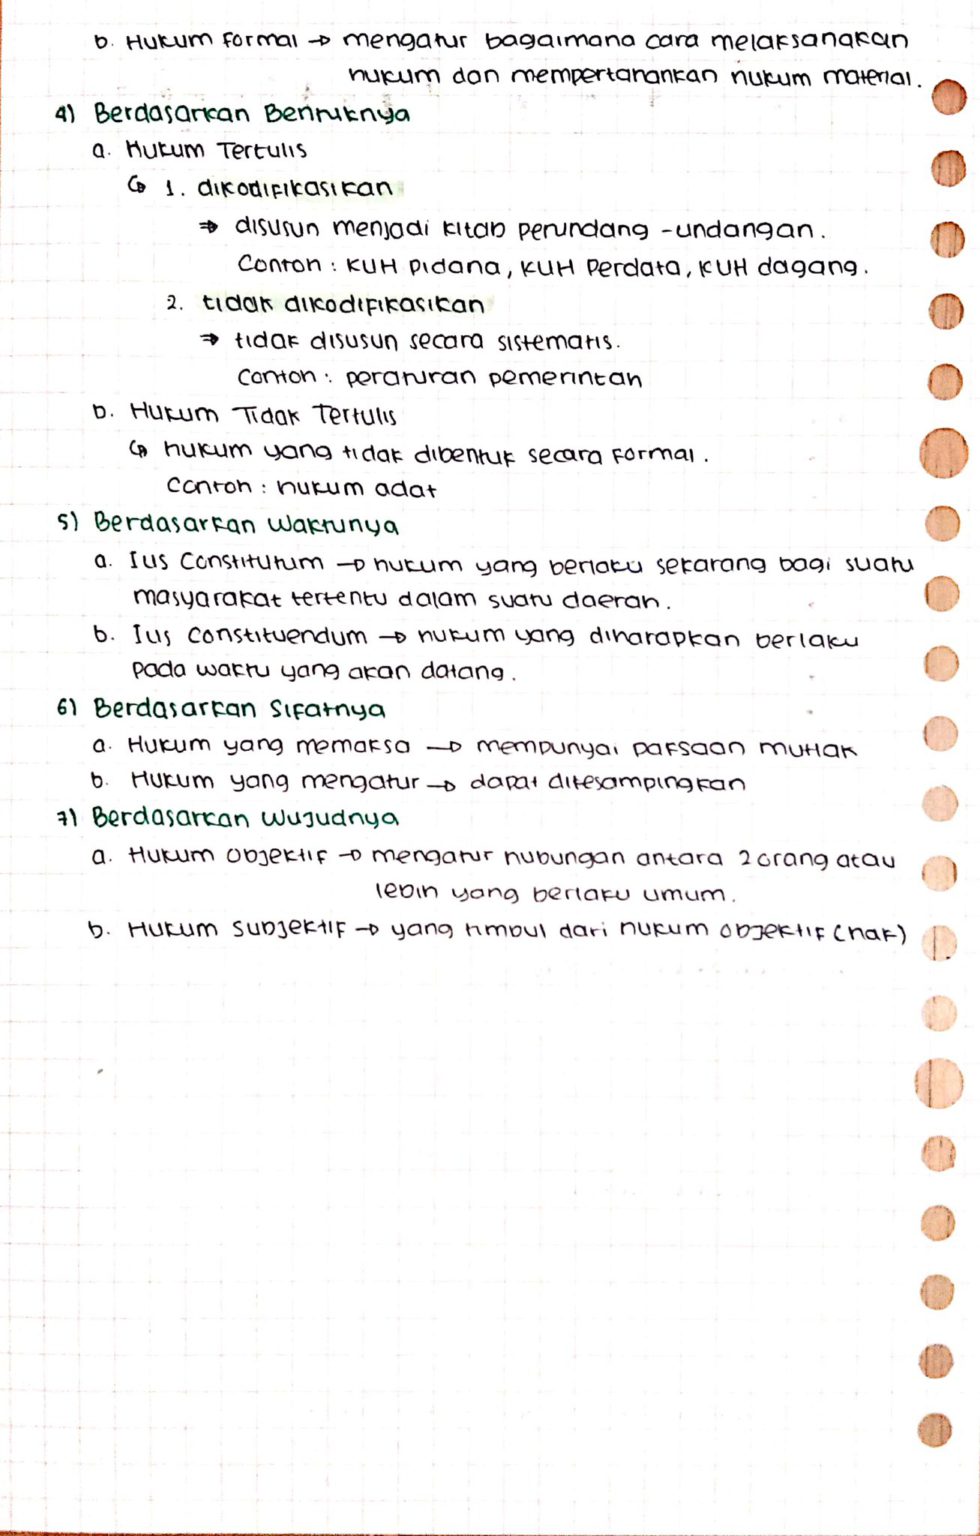 b. Hukum Formal → mengatur bagaimana cara melaksanakan
hukum dan mempertahankan hukum material.
4) Berdasarkan Bentuknya
a. Hukum Tertulis
↳ 1. dikodifikasikan
⇒ disusun menjadi kitab perundang-undangan.
Contoh : KUH Pidana, KUH Perdata, KUH dagang.
2. tidak dikodifikasikan
⇒ tidak disusun secara sistematis.
Contoh : peraturan pemerintah
b. Hukum Tidak Tertulis
↳ hukum yang tidak dibentuk secara formal.
Contoh : hukum adat
5) Berdasarkan Waktunya
a. Ius Constitutum → hukum yang berlaku sekarang bagi suatu
masyarakat tertentu dalam suatu daerah.
b. Ius Constituendum → hukum yang diharapkan berlaku
pada waktu yang akan datang.
6) Berdasarkan Sifatnya
a. Hukum yang memaksa → mempunyai paksaan mutlak
b. Hukum yang mengatur → dapat dikesampingkan
7) Berdasarkan Wujudnya
a. Hukum Objektif → mengatur hubungan antara 2 orang atau
lebih yang berlaku umum.
b. Hukum Subjektif → yang timbul dari hukum objektif (hak)